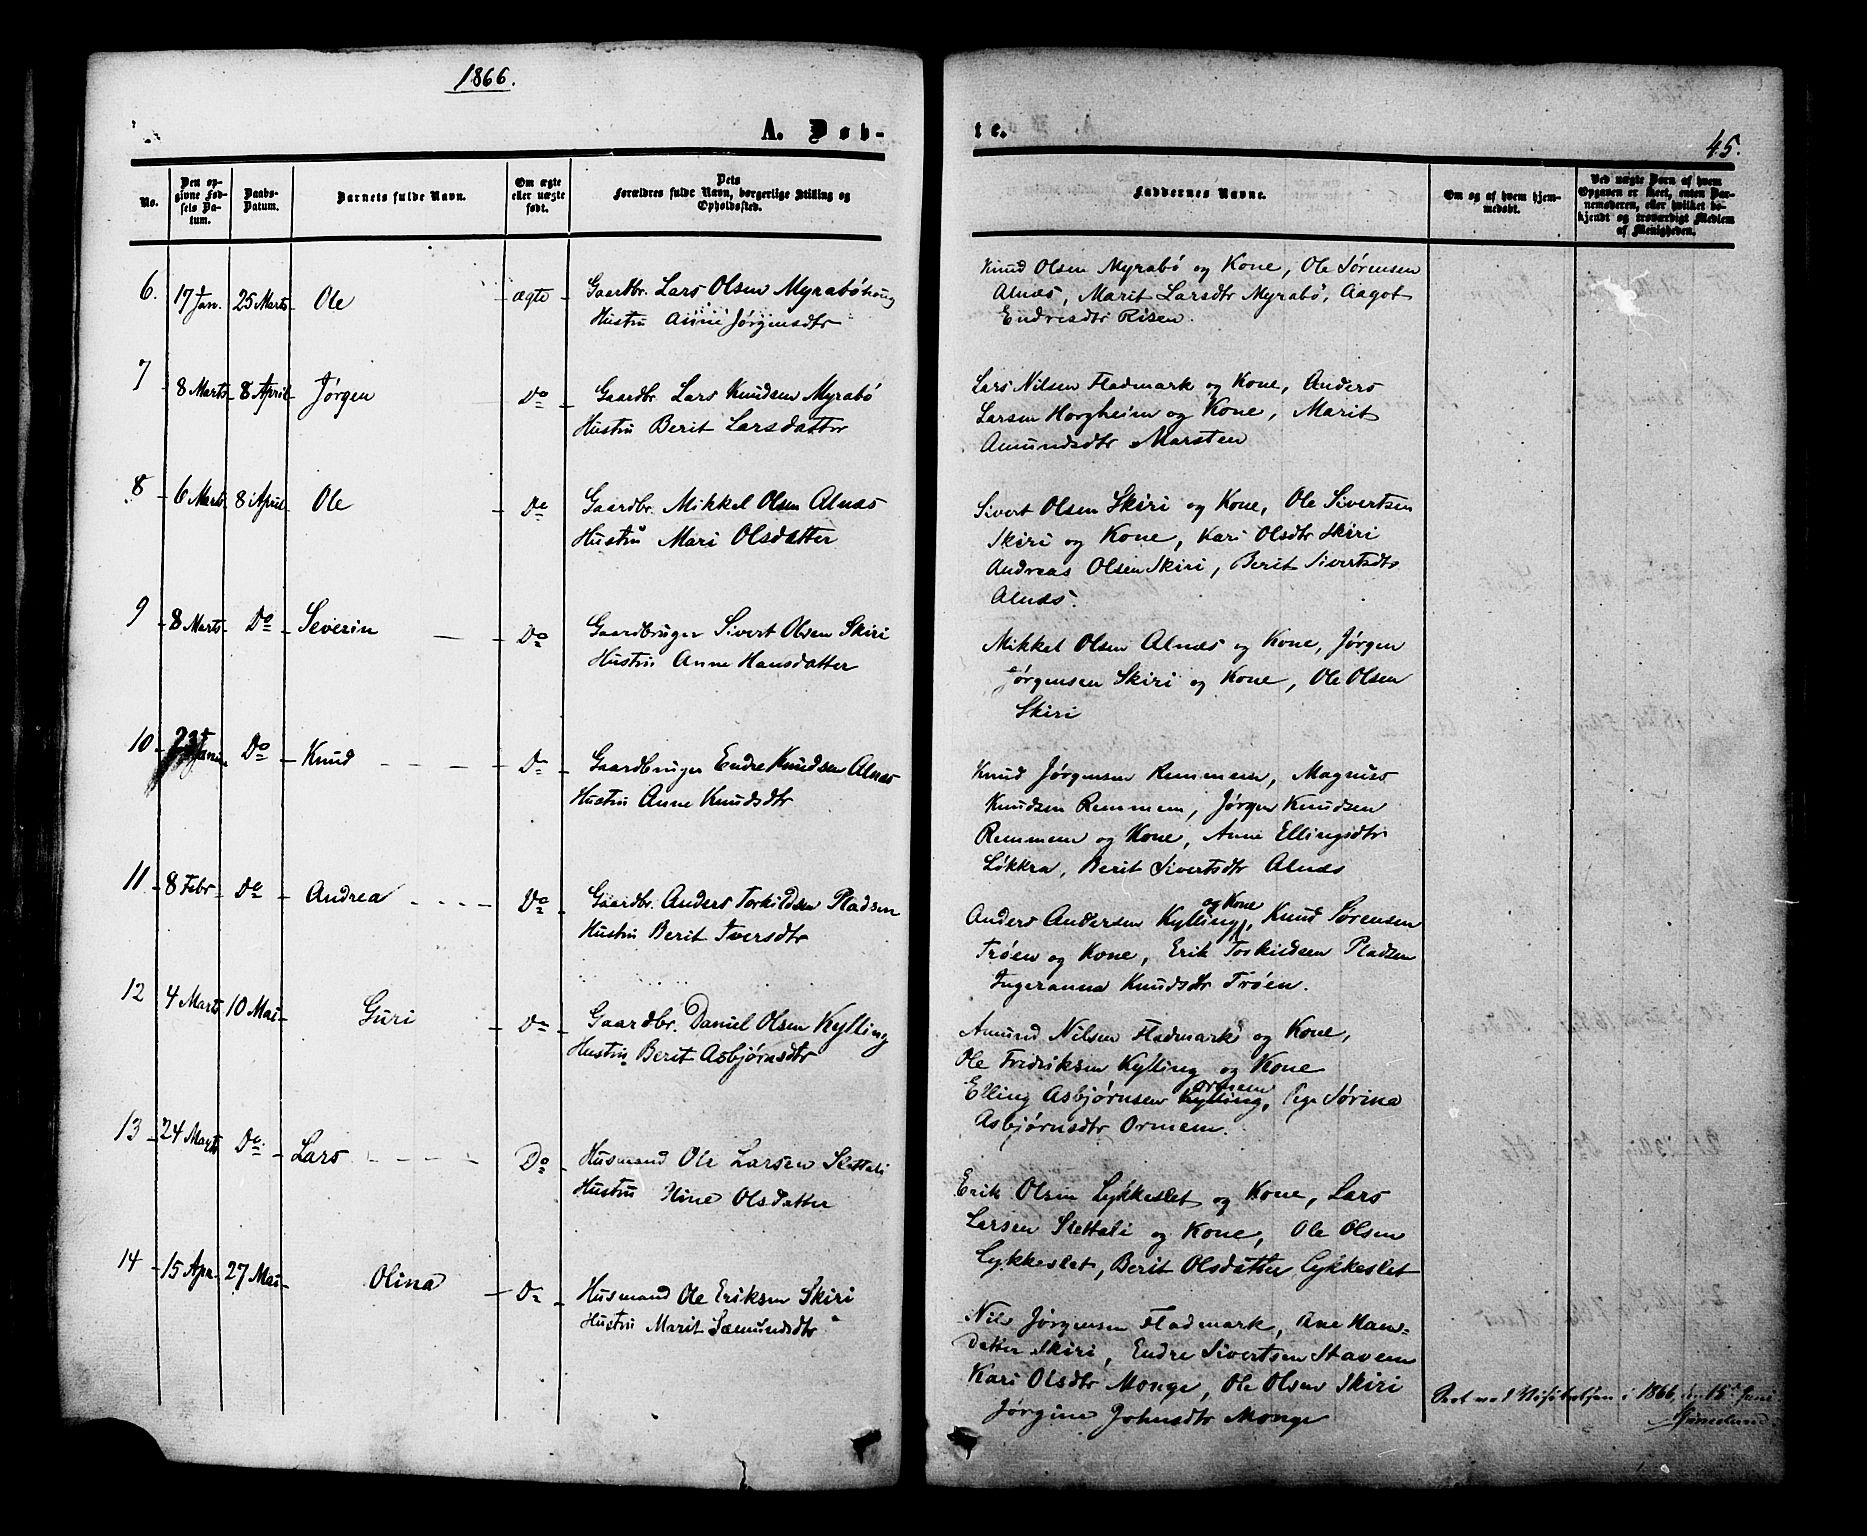 1866.
A. Døb-
te.
45.
No.
Den op-
givne Fød-
sels Da-
tum.
Daabs-
Datum.
Barnets fulde Navn.
Om ægte
eller uægte
født.
Dets
Forældres fulde Navn, borgerlige Stilling og
Opholdssted.
Faddernes Navne.
Om og af hvem hjem-
medøbt.
Ved uægte Børn af hvem
Opgaven er skeet, enten Bar-
nemoderen, eller hvilket be-
kjendt og troværdigt Medlem
af Menigheden.
6. 17 Jan. 25 Marts Ole ægte Gaardbr. Lars Olsen Myrabö
Hustru Anne Jørgensdtr
Knud Olsen Myrabö og Kone, Ole Sørensen
Alnæs, Marit Larsdtr Myrabö, Aagot
Endresdtr Risen.
7 8 Marts 8 April Jørgen Do Gaardbr. Lars Knudsen Myrabö
Hustru Berit Larsdatter
Lars Nilsen Fladmark og Kone, Anders
Larsen Horgheim og Kone, Marit
Amundsdtr Marsten
8 6 Marts 8 April Ole Do Gaardbr. Mikkel Olsen Alnæs
Hustru Mari Olsdatter
Sivert Olsen Skiri og Kone, Ole Sivertsen
Skiri og Kone, Kari Olsdtr Skiri
Andreas Olsen Skiri, Berit Sivertsdtr
Alnæs.
9 8 Marts Do Severin Do Gaardbruger Sivert Olsen Skiri
Hustru Anne Hansdatter
Mikkel Olsen Alnæs og Kone, Jørgen
Jørgensen Skiri og Kone, Ole Olsen
Skiri
10 Do Knud Do Gaardbruger Endre Knudsen Alnæs
Hustru Anne Knudsdtr
Knud Jørgensen Remmem, Magnus
Knudsen Remmem, Jørgen Knudsen
Remmem og Kone, Anne Ellingsdtr
Løkkra, Berit Sivertsdtr Alnæs
11 8 Febr Do Andrea Do Gaardbr. Anders Torkildsen Pladsen
Hustru Berit Iversdtr
og Kone
Anders Andersen Kylling, Knud Sørensen
Trøen og Kone, Erik Torkildsen Pladsen
Ingeranna Knudsdtr Trøen.
12 4 Marts 10 Mai Guri Do Gaardbr. Daniel Olsen Kylling
Hustru Berit Asbjørnsdtr
Amund Nilsen Fladmark og Kone,
Ole Fredriksen Kylling og Kone
Ormem
Elling Asbjørnsen Kylling, Pige Sørina
Asbjørnsdtr Ormem.
13 24 Marts Do Lars Do Husmand Ole Larsen Slettali
Hustru Stine Olsdatter
Erik Olsen Lykkeslet og Kone, Lars
Larsen Slettali og Kone, Ole Olsen
Lykkeslet, Berit Olsdatter Lykkeslet
14 15 Apr. 27 Mai Olina Do Husmand Ole Eriksen Skiri
Hustru Marit Sæmundsdtr
Nils Jørgensen Fladmark, Ane Hans-
datter Skiri, Endre Sivertsen Stavem
Kari Olsdtr Monge, Ole Olsen Skiri
Jørgine Johnsdtr Monge
i 1866, den 15de Juni